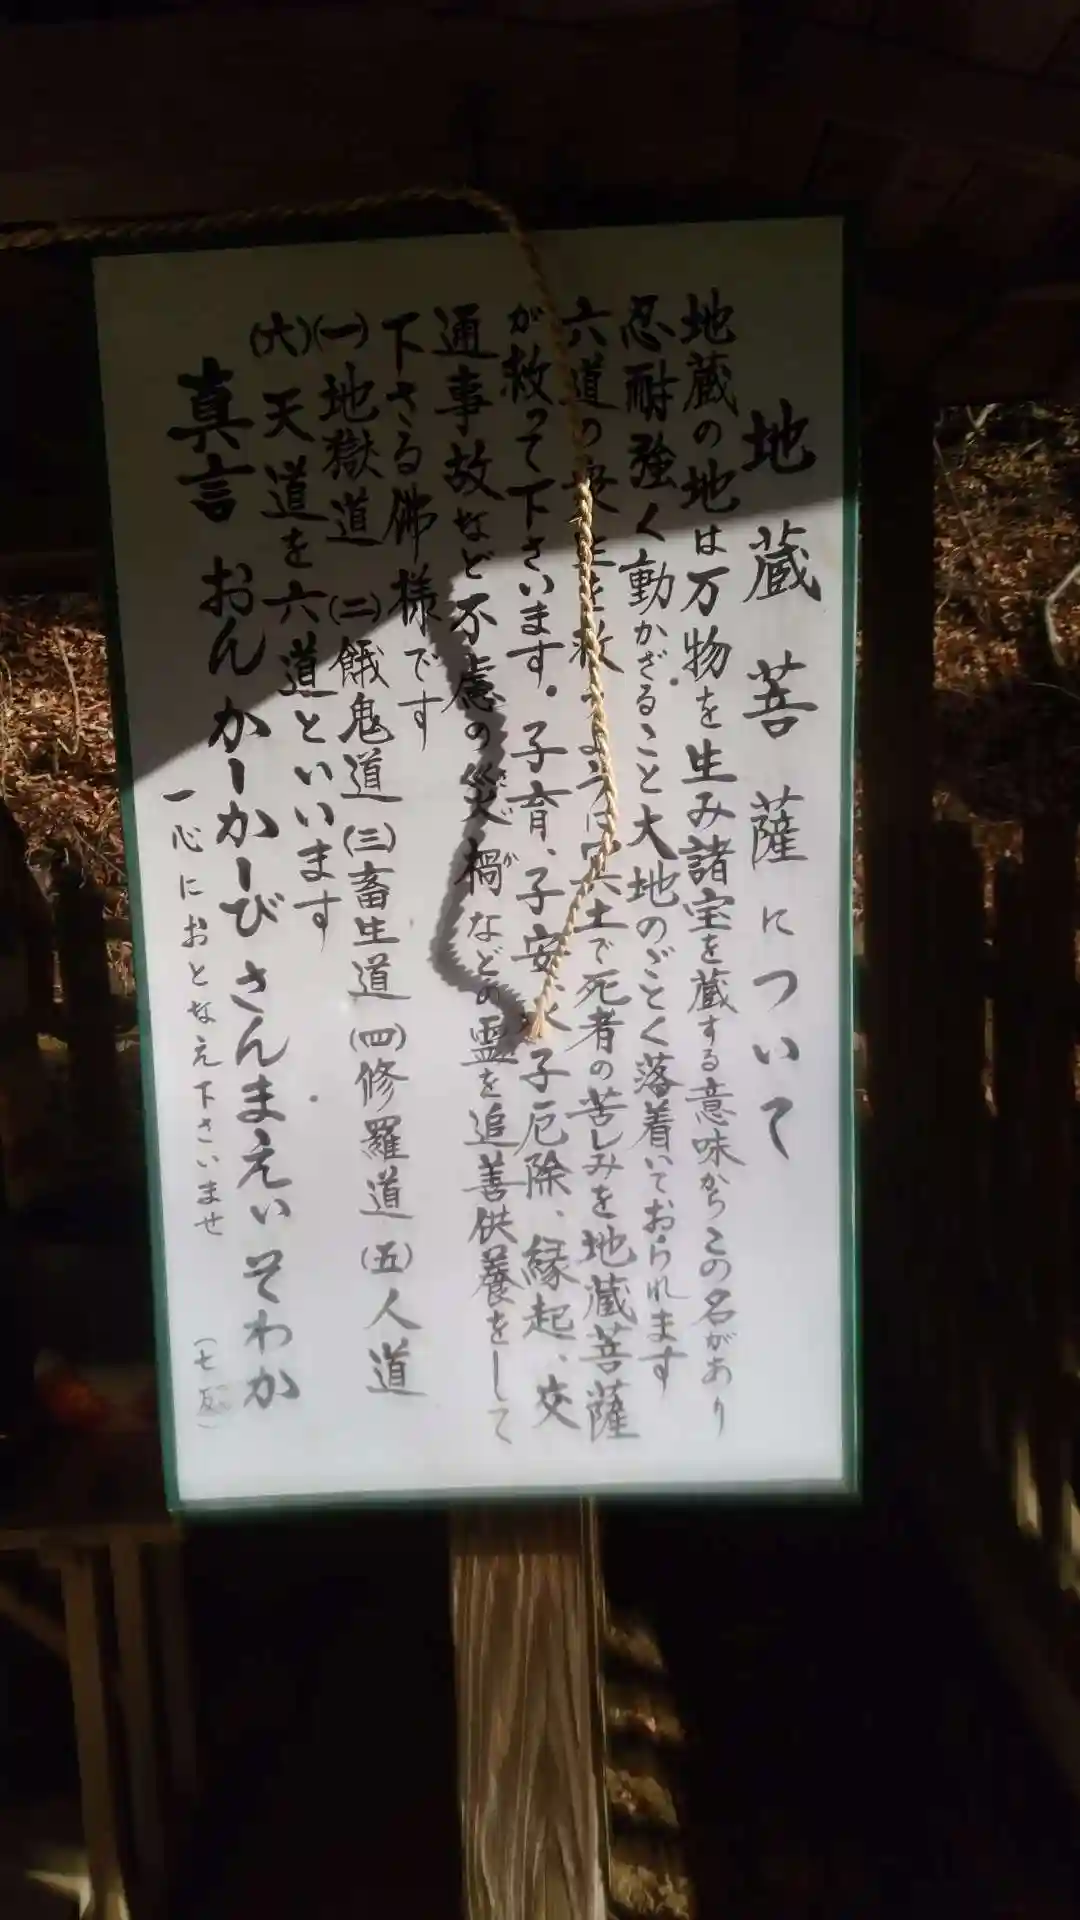 地蔵菩薩について
地蔵の地は万物を生み諸宝を蔵する意味からこの名があり
忍耐強く動かざること大地のごとく落着いておられます
六道の衆生を救うように冥土で死者の苦しみを地蔵菩薩
が救って下さいます。子育、子安、水子厄除、縁起、交
通事故など不慮の災禍などの霊を追善供養をして
下さる佛様です
(一)地獄道 (二)餓鬼道 (三)畜生道 (四)修羅道 (五)人道
(六)天道を六道といいます
真言 おんかーかーび さんまえい そわか
一心におとなえ下さいませ (七返)